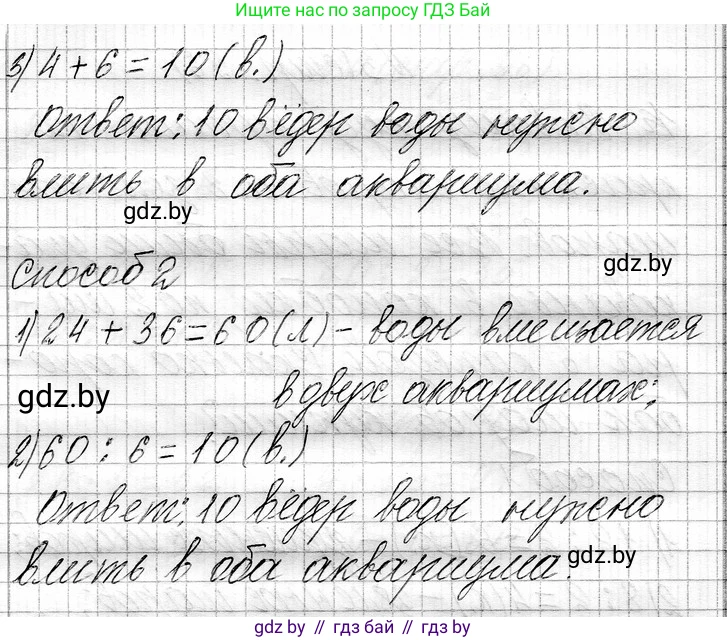 Ищите нас по запросу ГДЗ Бай
3) 4 + 6 = 10 (в.)
Ответ: 10 вёдер воды нужно
влить в оба аквариума.
gdz.by
gdz.by
Способ 2
1) 24 + 36 = 60 (л) - воды вмещается
в двух аквариумах;
gdz.by
2) 60 : 6 = 10 (в.)
Ответ: 10 вёдер воды нужно
влить в оба аквариума.
gdz.by
gdz.by // гдз бай // гдз by